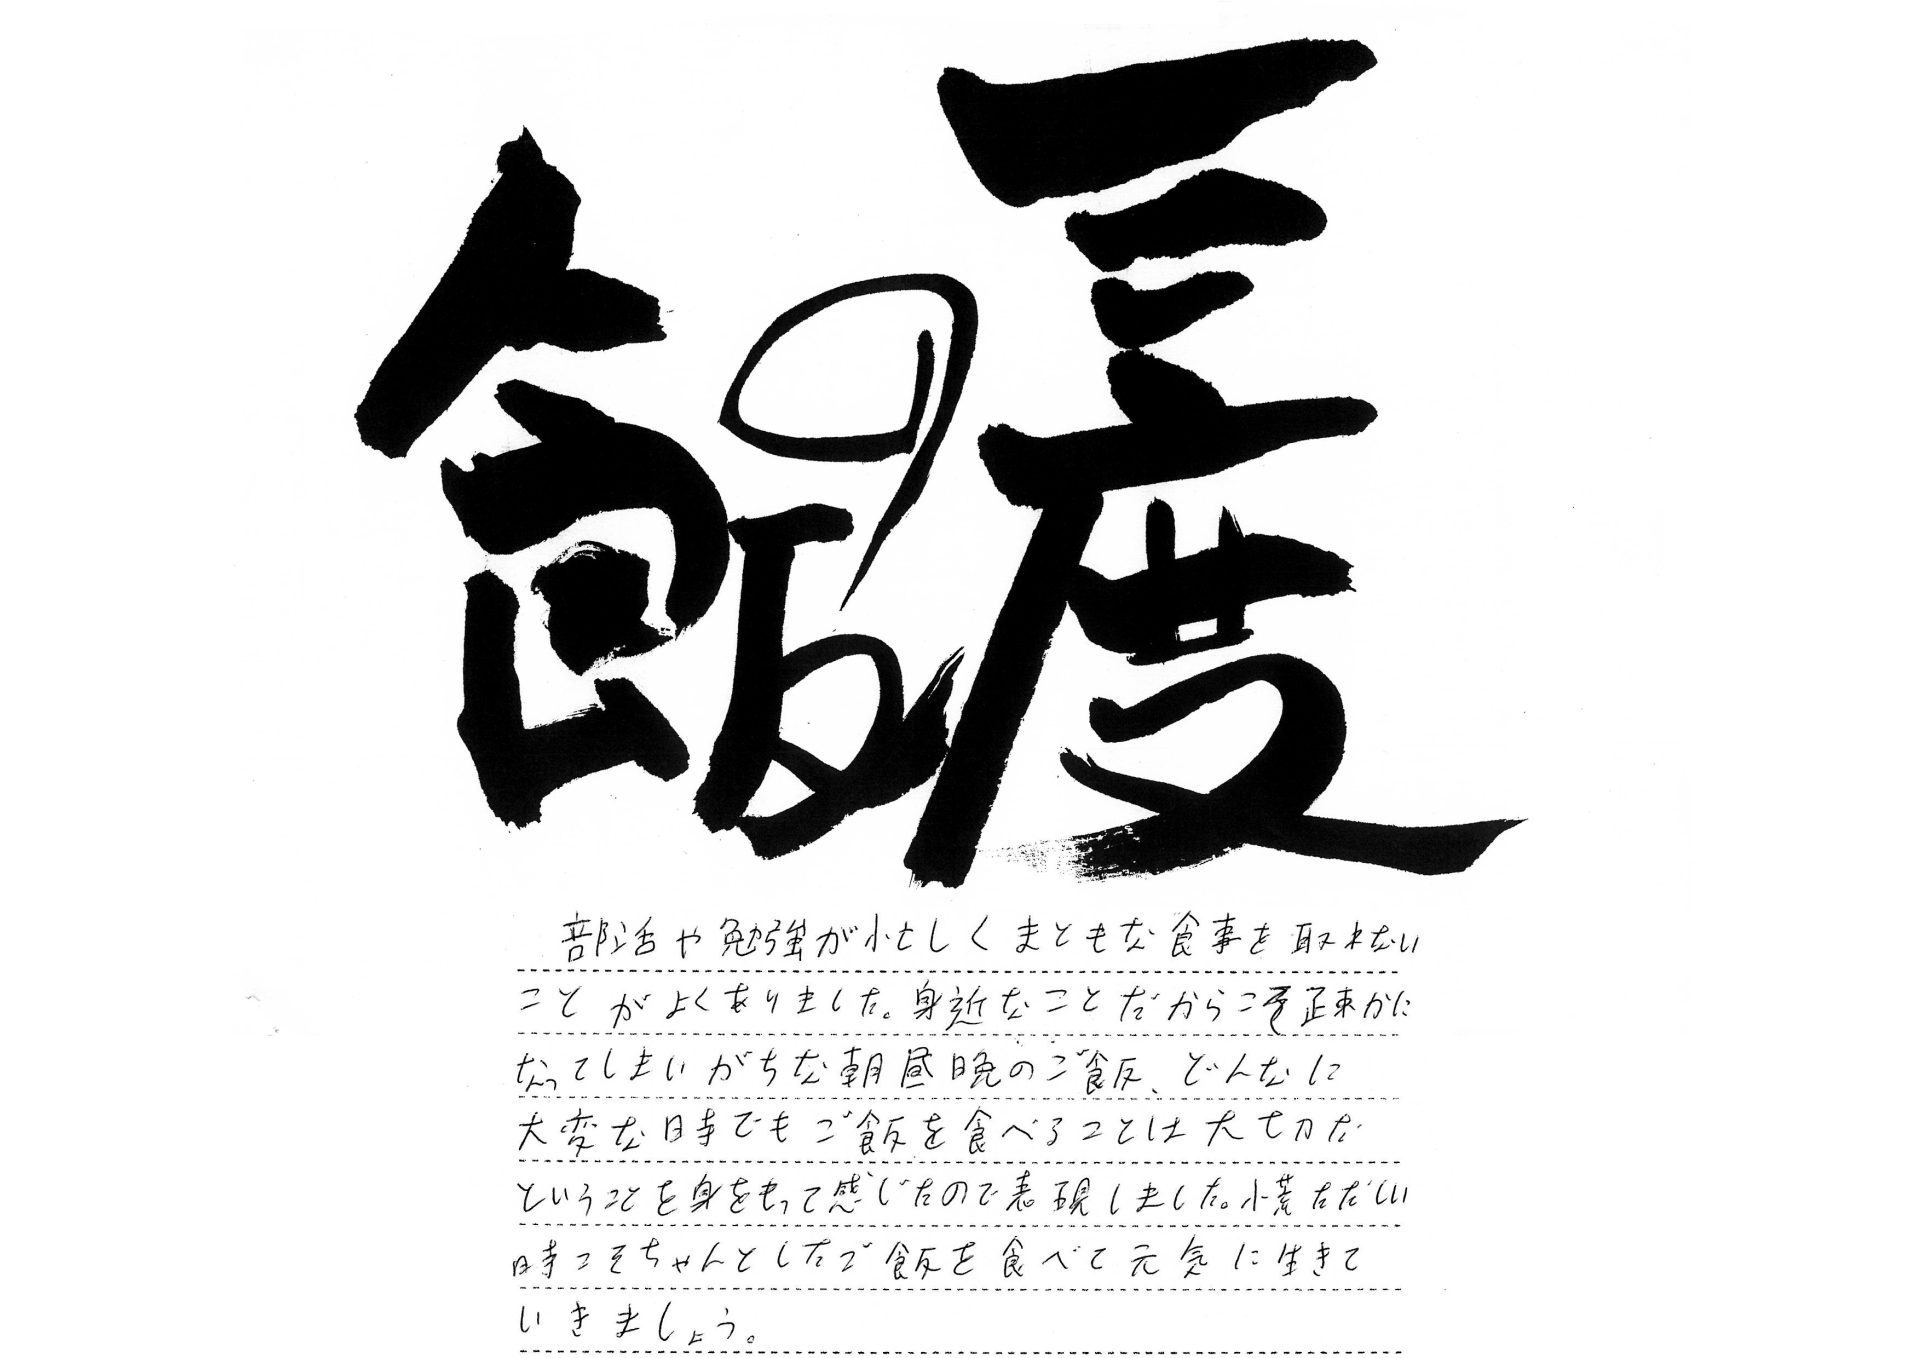 三度の飯
部活や勉強が忙しくまともな食事を取れない
ことがよくありました。身近なことだからこそ疎かに
なってしまいがちな朝昼晩のご飯、どんなに
大変な時でもご飯を食べることは大切だ
ということを身をもって感じたので表現しました。慌ただしい
時こそちゃんとしたご飯を食べて元気に生きて
いきましょう。